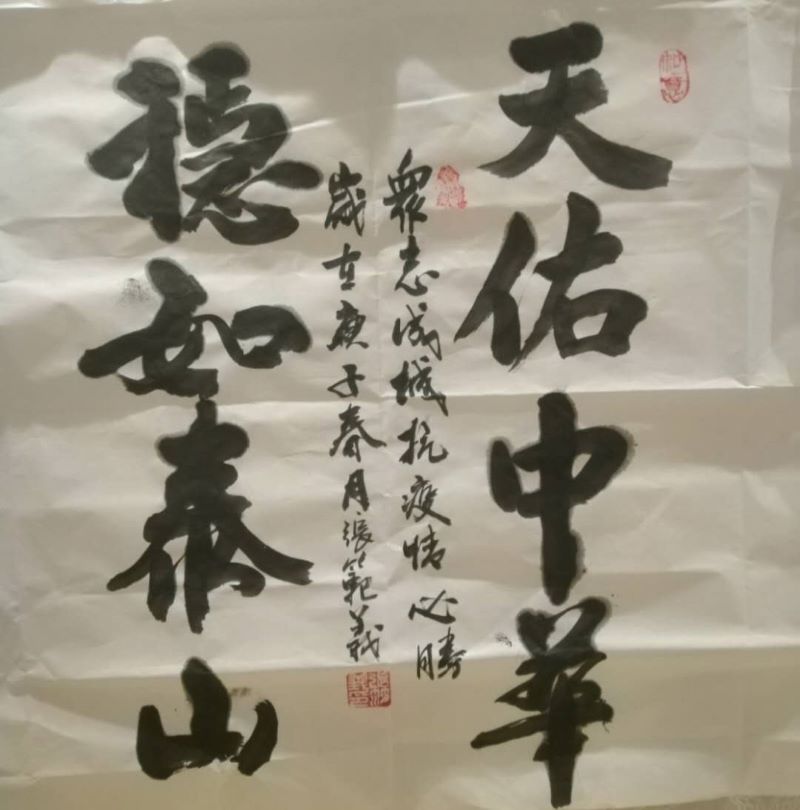 天佑中華
眾志成城抗疫情必勝
歲在庚子春月張範義
穩如泰山
如意